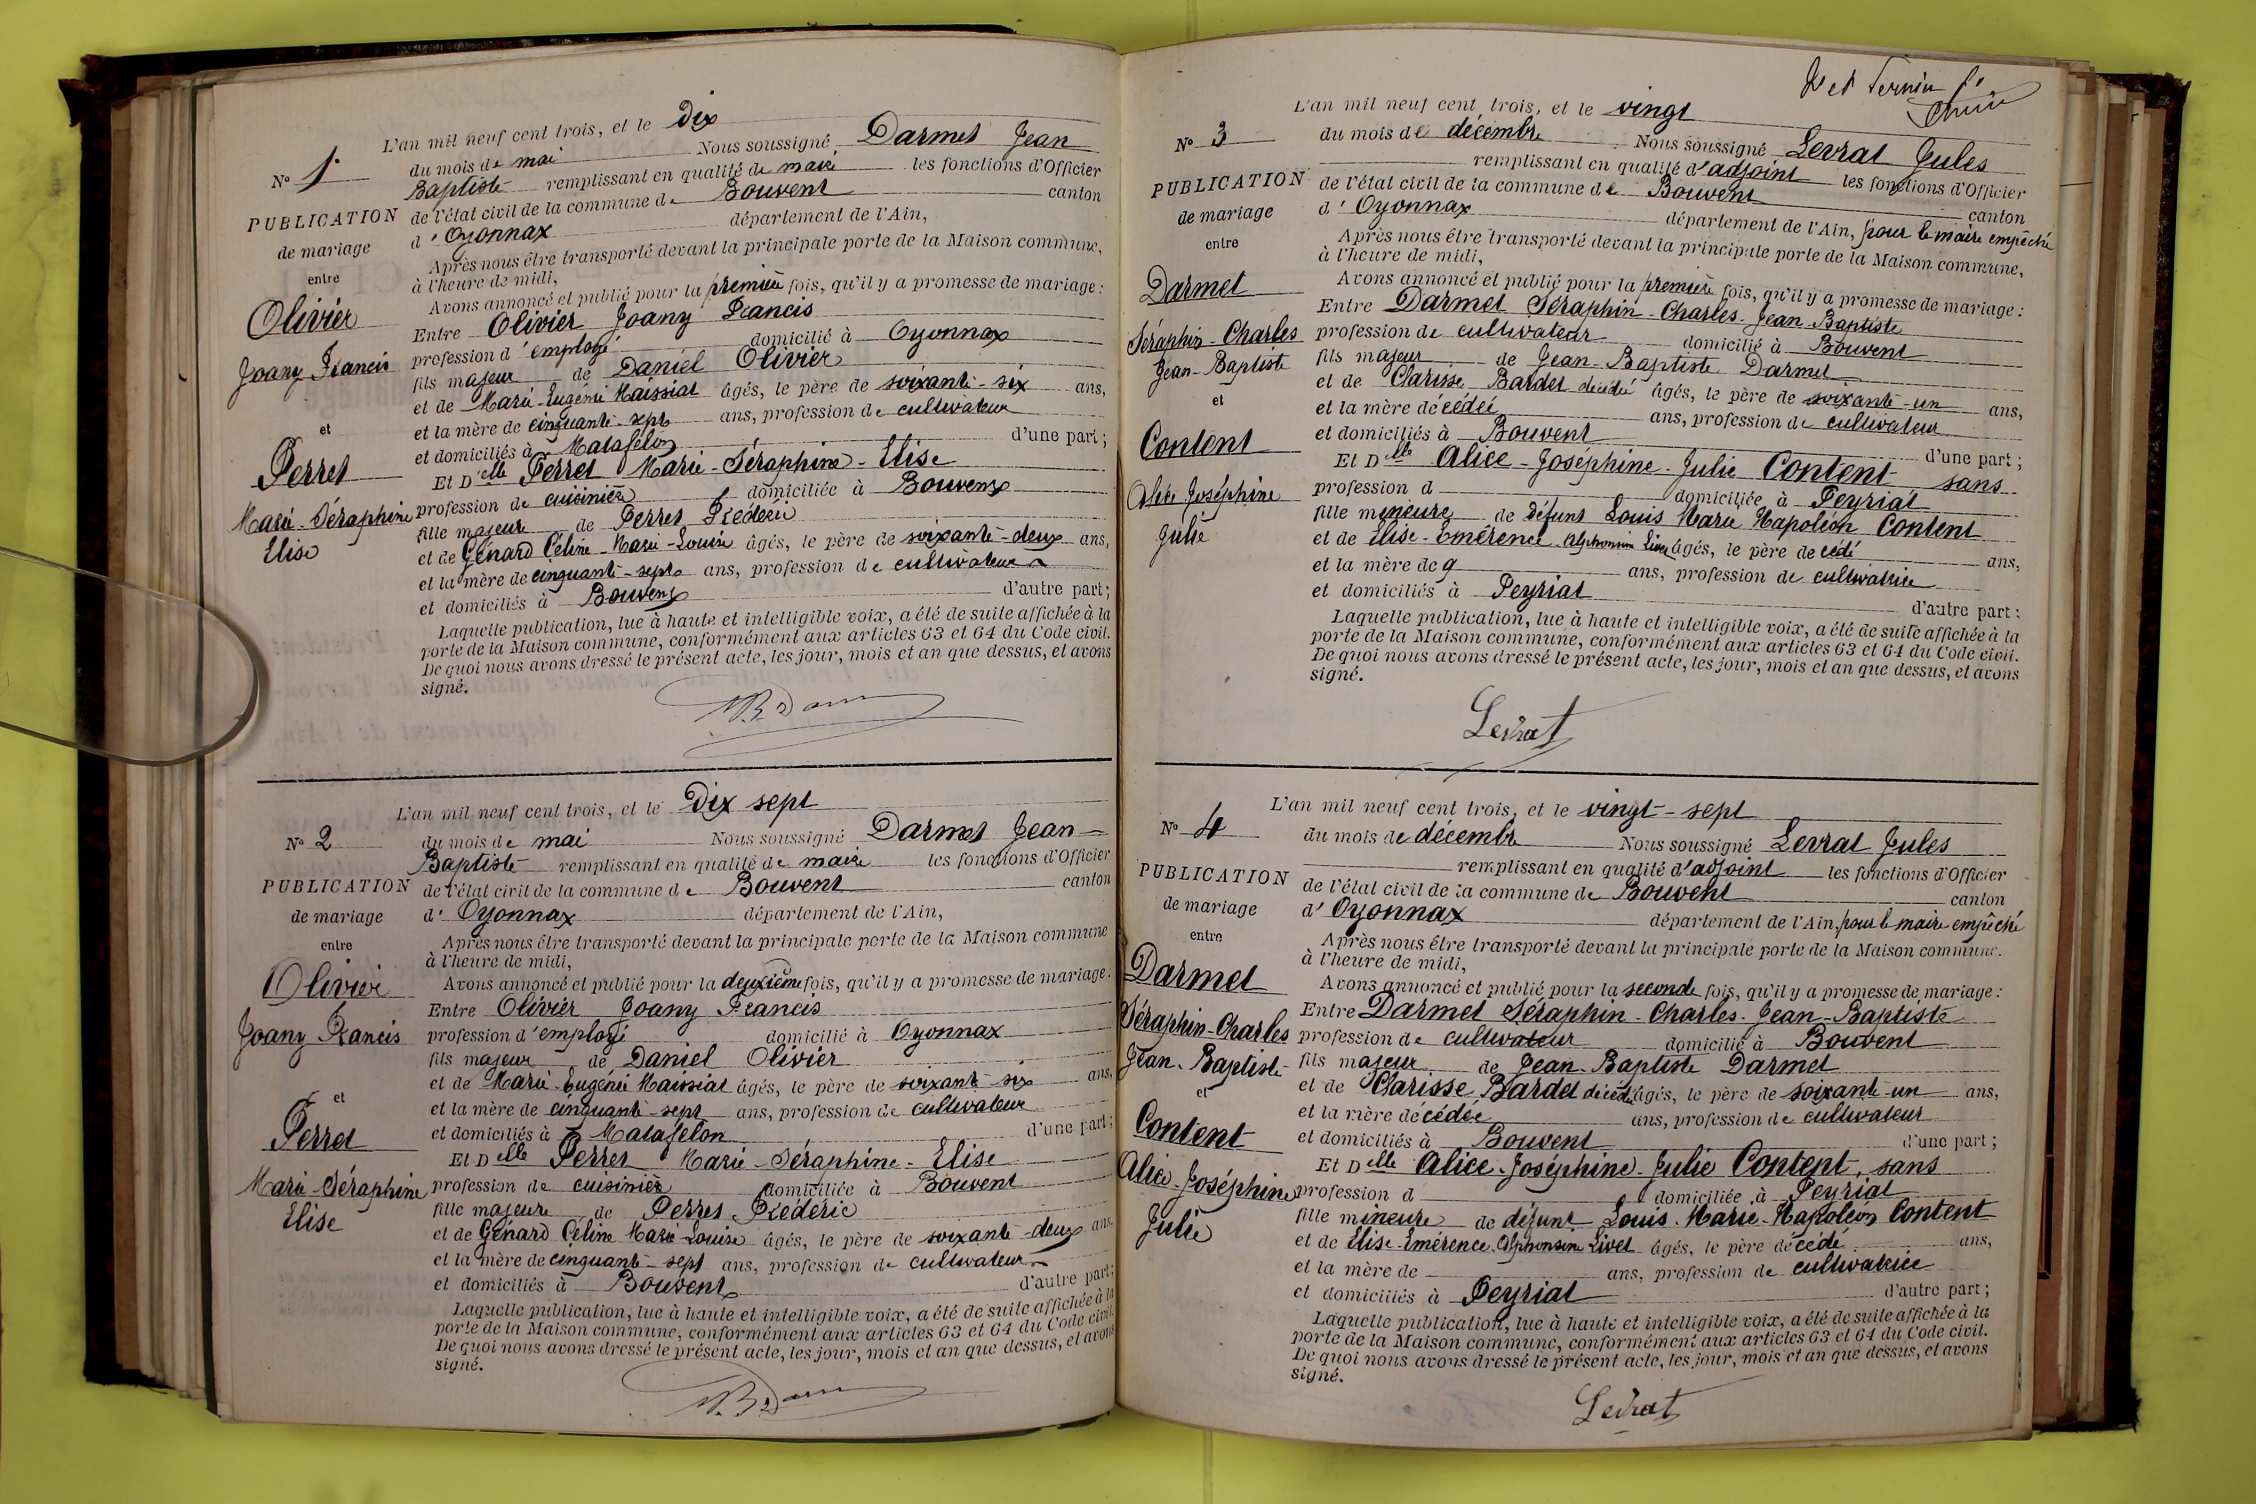 L'an mil neuf cent trois, et le Dix
N° 1
du mois de mai Nous soussigné Darmet Jean
Baptiste remplissant en qualité de maire les fonctions d'Officier
PUBLICATION
de l'état civil de la commune de Bouvent canton
de mariage
d'Oyonnax département de l'Ain,
entre
Après nous être transporté devant la principale porte de la Maison commune,
à l'heure de midi,
Avons annoncé et publié pour la première fois, qu'il y a promesse de mariage :
Olivier
Entre Olivier Joany Francis
Joany Francis
profession d'employé domicilié à Oyonnax
fils majeur de Daniel Olivier
et de Marie-Eugénie Maissiat âgés, le père de soixante-six ans,
et
et la mère de cinquante-sept ans, profession de cultivateur
et domiciliés à Matafelon d'une part ;
Perret
Et Delle Perret Marie-Séraphine-Elise
Marie-Séraphine
profession de cuisinière domiciliée à Bouvent
Elise
fille majeure de Perret Frédéric
et de Génard Céline Marie-Louise âgés, le père de soixante-deux ans,
et la mère de cinquante-sept ans, profession de cultivateur
et domiciliés à Bouvent d'autre part ;
Laquelle publication, lue à haute et intelligible voix, a été de suite affichée à la
porte de la Maison commune, conformément aux articles 63 et 64 du Code civil.
De quoi nous avons dressé le présent acte, les jour, mois et an que dessus, et avons
signé.
L'an mil neuf cent trois, et le Dix sept
N° 2
du mois de mai Nous soussigné Darmet Jean
Baptiste remplissant en qualité de maire les fonctions d'Officier
PUBLICATION
de l'état civil de la commune de Bouvent canton
de mariage
d'Oyonnax département de l'Ain,
entre
Après nous être transporté devant la principale porte de la Maison commune
à l'heure de midi,
Avons annoncé et publié pour la deuxième fois, qu'il y a promesse de mariage :
Olivier
Entre Olivier Joany Francis
Joany Francis
profession d'employé domicilié à Oyonnax
fils majeur de Daniel Olivier
et de Marie-Eugénie Maissiat âgés, le père de soixante-six ans,
et
et la mère de cinquante-sept ans, profession de cultivateur
et domiciliés à Matafelon d'une part ;
Perret
Et Delle Perret Marie-Séraphine-Elise
Marie-Séraphine
profession de cuisinière domiciliée à Bouvent
Elise
fille majeure de Perret Frédéric
et de Génard Céline Marie-Louise âgés, le père de soixante-deux ans,
et la mère de cinquante-sept ans, profession de cultivateur
et domiciliés à Bouvent d'autre part ;
Laquelle publication, lue à haute et intelligible voix, a été de suite affichée à la
porte de la Maison commune, conformément aux articles 63 et 64 du Code civil.
De quoi nous avons dressé le présent acte, les jour, mois et an que dessus, et avons
signé.
L'an mil neuf cent trois, et le vingt
N° 3
du mois de décembre Nous soussigné Levrat Jules
remplissant en qualité d'adjoint les fonctions d'Officier
PUBLICATION
de l'état civil de la commune de Bouvent canton
de mariage
d'Oyonnax département de l'Ain, pour le maire empêché
entre
Après nous être transporté devant la principale porte de la Maison commune,
à l'heure de midi,
Avons annoncé et publié pour la première fois, qu'il y a promesse de mariage :
Darmet
Entre Darmet Séraphin-Charles-Jean-Baptiste
Séraphin-Charles
profession de cultivateur domicilié à Bouvent
Jean-Baptiste
fils majeur de Jean-Baptiste Darmet
et de Clarisse Bardet décédée âgés, le père de soixante-un ans,
et
et la mère décédée ans, profession de cultivateur
Content
et domiciliés à Bouvent d'une part ;
Et Delle Alice-Joséphine-Julie Content sans
Alice Joséphine
profession d domiciliée à Peyriat
fille mineure de défunt Louis Marie Napoléon Content
Julie
et de Elise-Emérence Alphonsine Livet âgés, le père décédé ans,
et la mère de ans, profession de cultivatrice
et domiciliés à Peyriat d'autre part :
Laquelle publication, lue à haute et intelligible voix, a été de suite affichée à la
porte de la Maison commune, conformément aux articles 63 et 64 du Code civil.
De quoi nous avons dressé le présent acte, les jour, mois et an que dessus, et avons
signé.
Levrat
L'an mil neuf cent trois, et le vingt-sept
N° 4
du mois de décembre Nous soussigné Levrat Jules
remplissant en qualité d'adjoint les fonctions d'Officier
PUBLICATION
de l'état civil de la commune de Bouvent canton
de mariage
d'Oyonnax département de l'Ain, pour le maire empêché
entre
Après nous être transporté devant la principale porte de la Maison commune.
à l'heure de midi,
Avons annoncé et publié pour la seconde fois, qu'il y a promesse de mariage :
Darmet
Entre Darmet Séraphin-Charles-Jean-Baptiste
Séraphin-Charles
profession de cultivateur domicilié à Bouvent
Jean-Baptiste
fils majeur de Jean-Baptiste Darmet
et
et de Clarisse Bardet décédée âgés, le père de soixante-un ans,
et la mère décédée ans, profession de cultivateur
Content
et domiciliés à Bouvent d'une part ;
Et Delle Alice-Joséphine-Julie Content, sans
Alice-Joséphine
profession d domiciliée à Peyriat
Julie
fille mineure de défunt Louis-Marie-Napoléon Content
et de Elise-Emérence-Alphonsine Livet âgés, le père décédé ans,
et la mère de ans, profession de cultivatrice
et domiciliés à Peyriat d'autre part ;
Laquelle publication, lue à haute et intelligible voix, a été de suite affichée à la
porte de la Maison commune, conformément aux articles 63 et 64 du Code civil.
De quoi nous avons dressé le présent acte, les jour, mois et an que dessus, et avons
signé.
Levrat